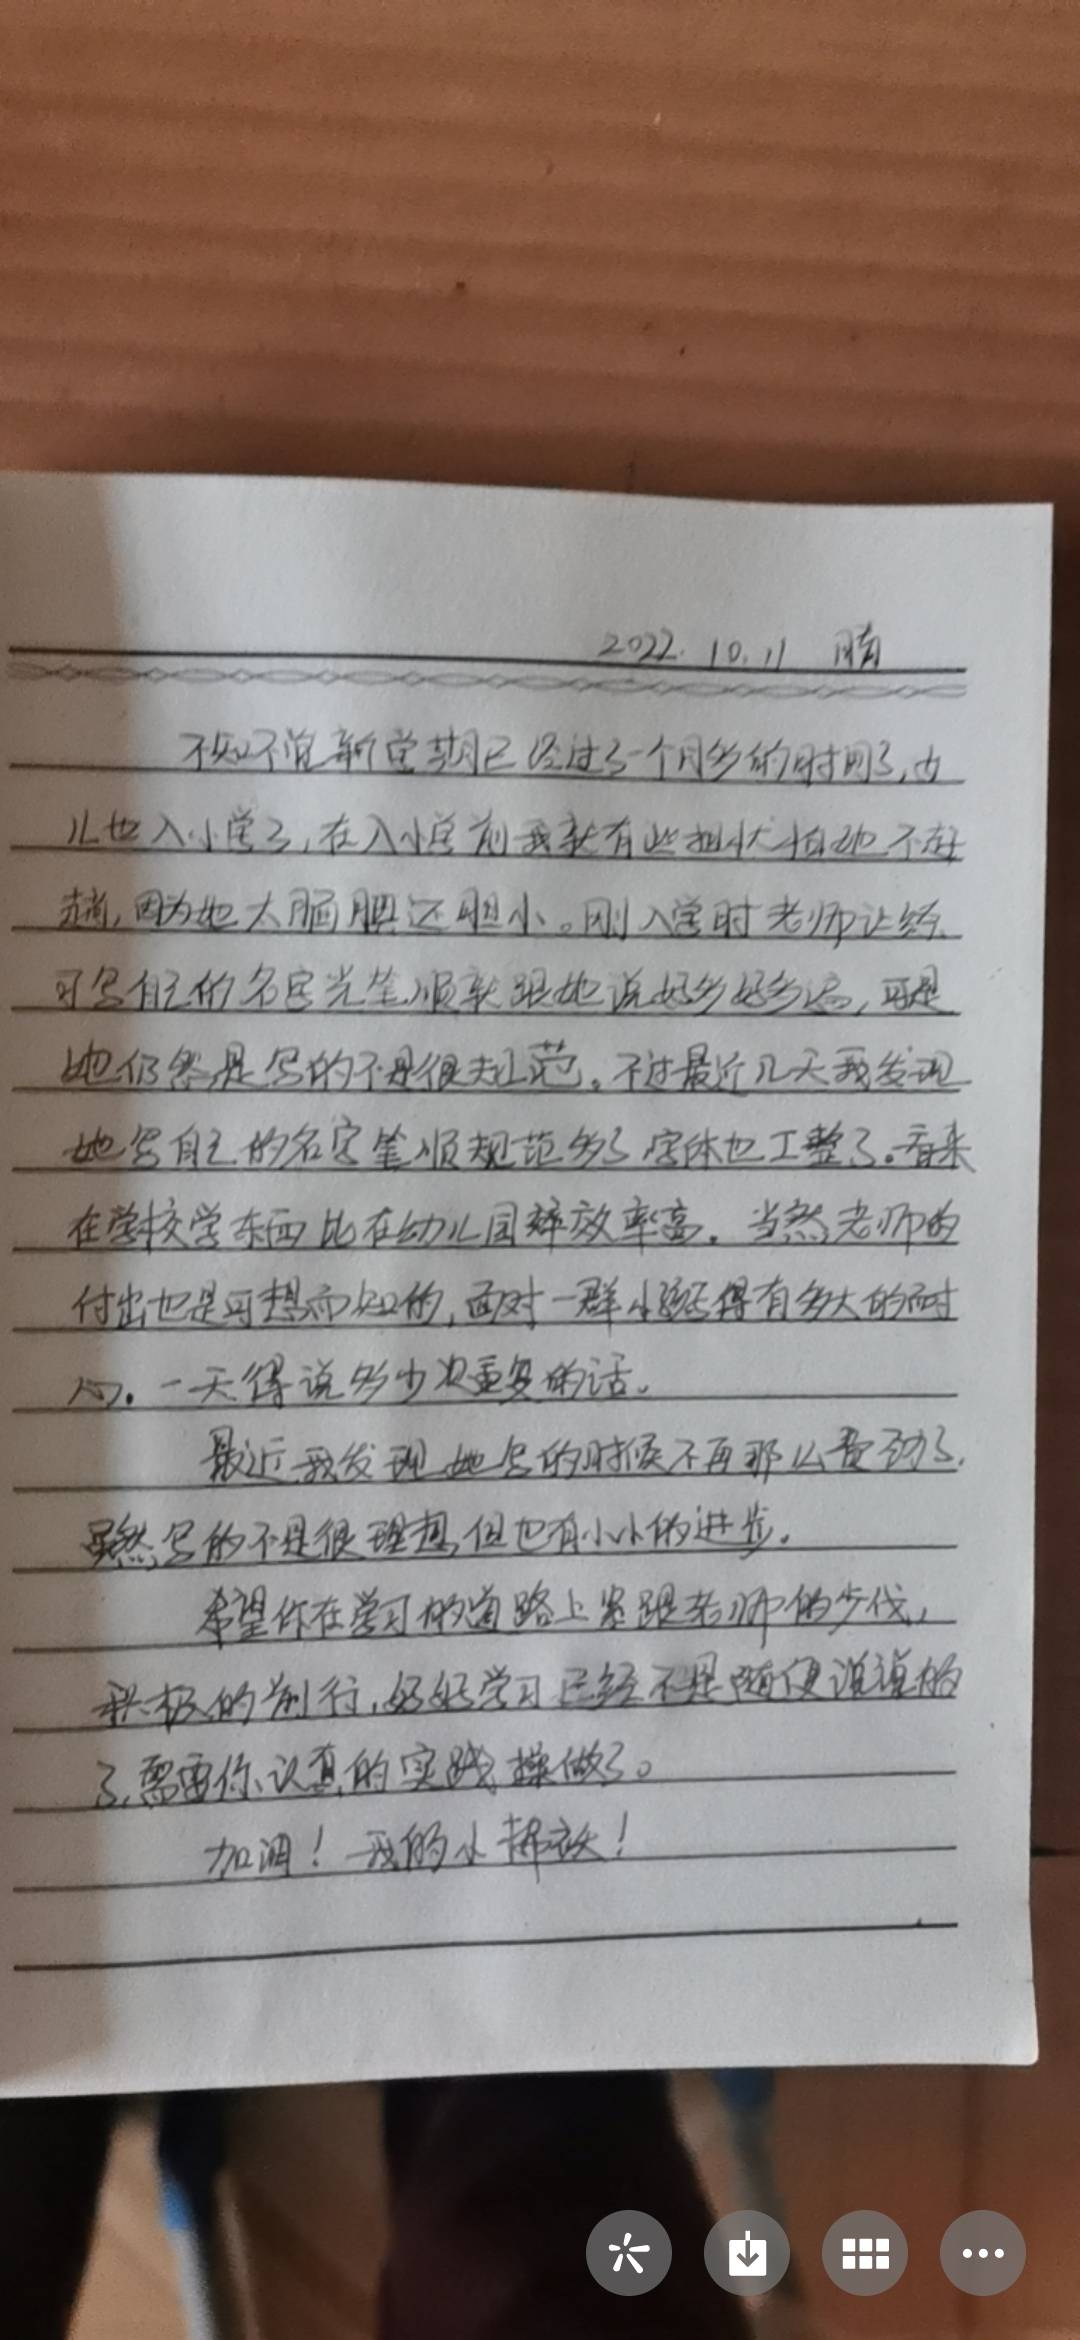 2022.10.11 晴
不知不觉新学期已经过了一个月多的时间了,女
儿也入小学了,在入小学前我就有些担忧怕她不好
,因为她太腼腆还胆小。刚入学时老师让练
习写自己的名字光笔顺就跟她说好多好多遍,可是
她仍然是写的不是很规范。不过最近几天我发现
她写自己的名字笔顺规范多了字体也工整了。看来
在学校学东西比在幼儿园效率高。当然老师的
付出也是可想而知的,面对一群小孩得有多大的耐
心。一天得说多少次重复的话。
最近我发现她写的时候不再那么费劲了,
虽然写的不是很理想,但也有小小的进步。
希望你在学习的道路上紧跟老师的步伐,
积极的前行,好好学习已经不是随便说说的
了,需要你认真的实践操做了。
加油!我的小棉袄!